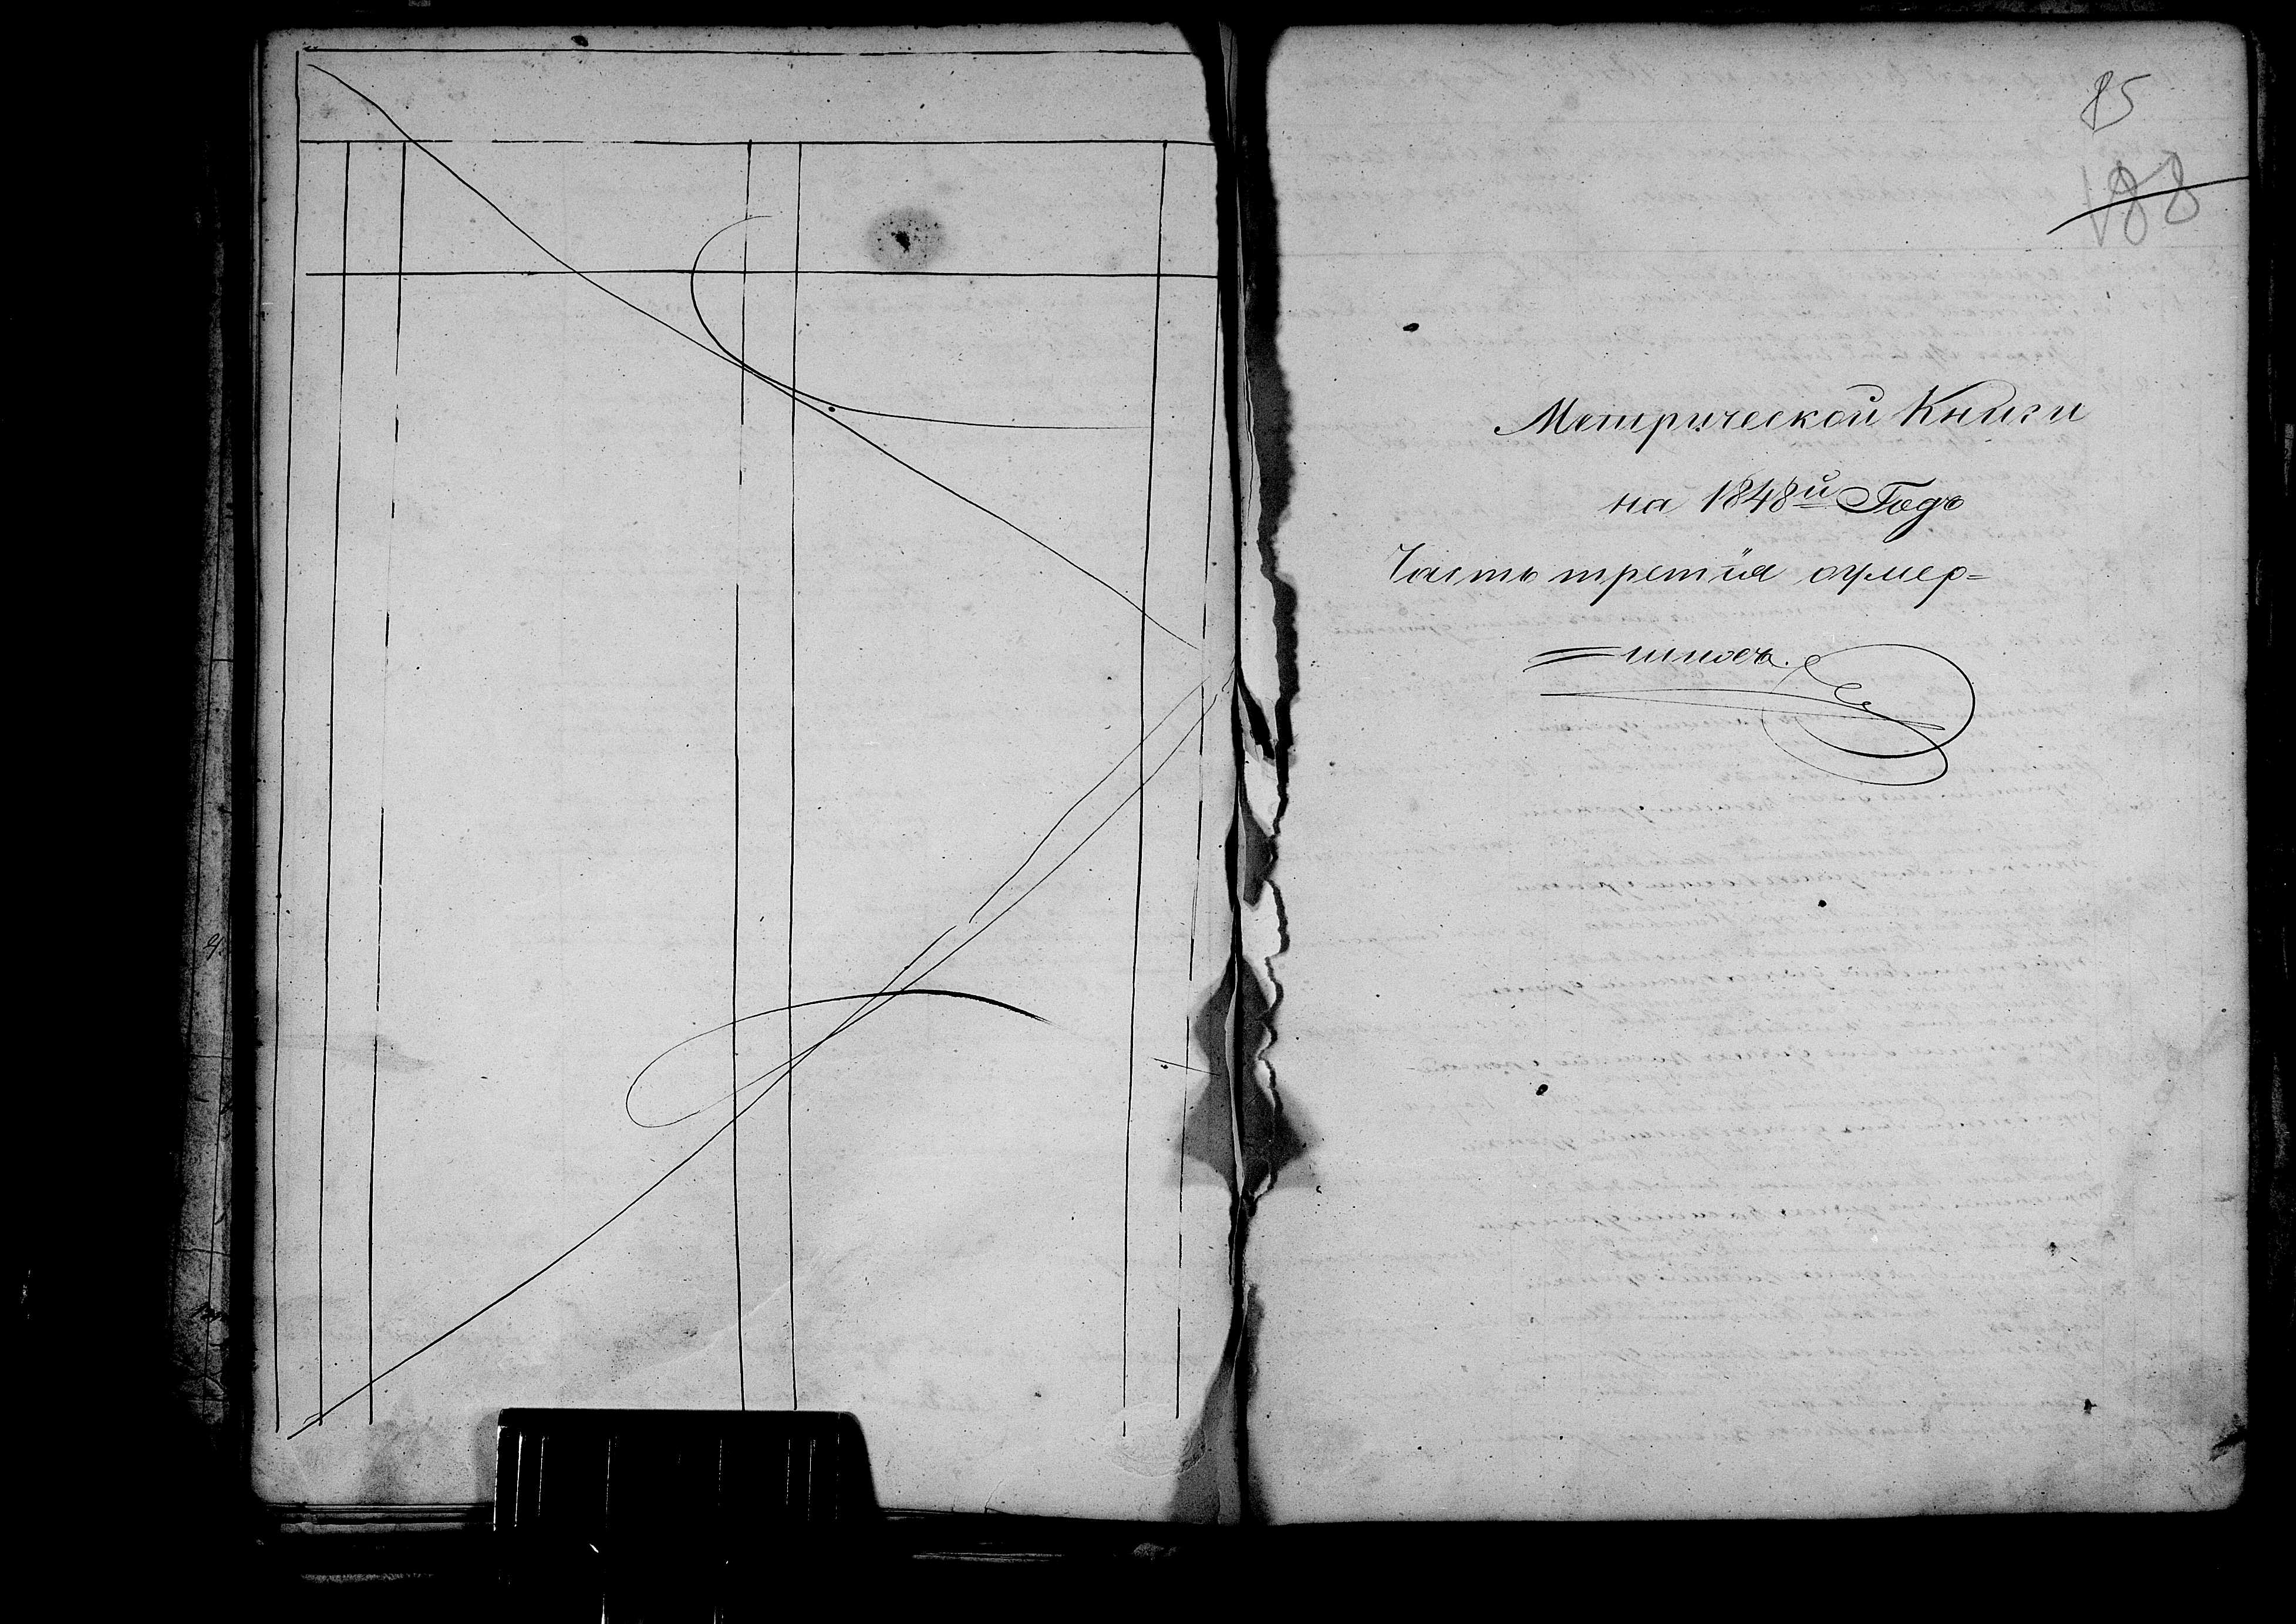 85
188
Метрической Книги
на 1848й Годъ
Часть третїя оумер=
=шихъ.